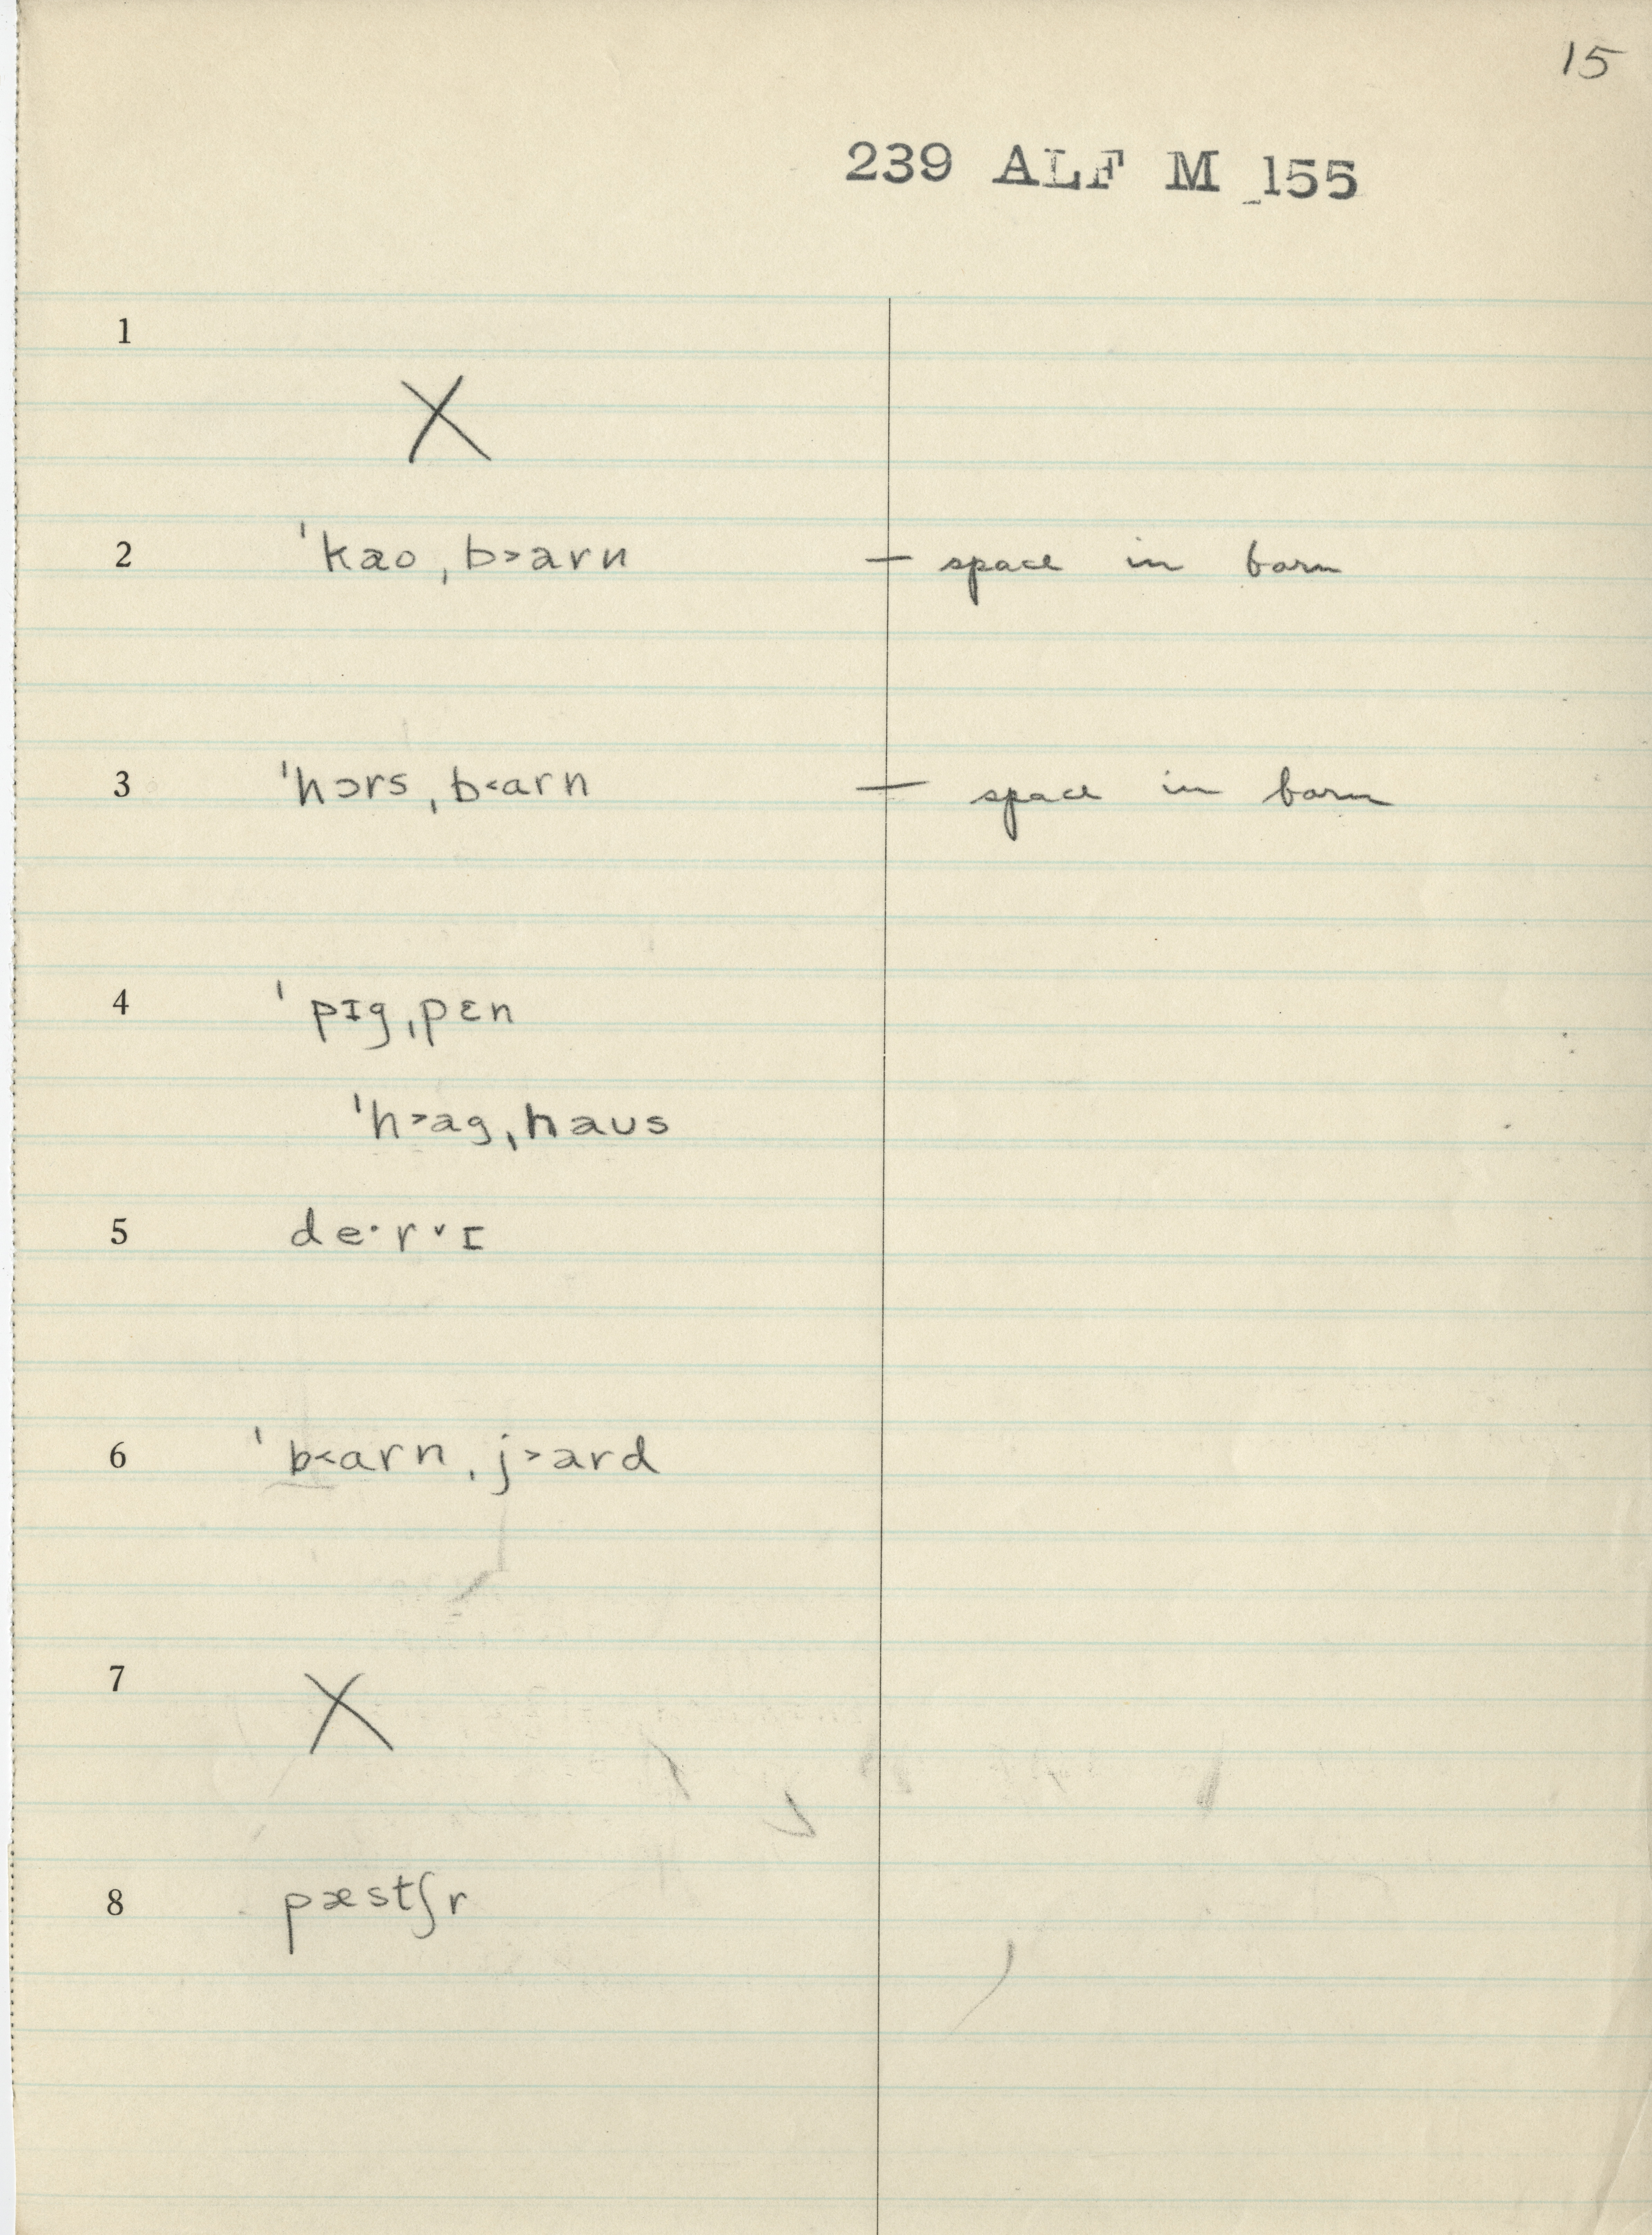 15
239 ALF M 155
1
X
2 ˈkæo ˌb˃arn – space in barn
3 ˈhɔrs ˌb˂ɑrn – space in barn
4 ˈpɪg ˌpɛn
ˈh˃ag ˌhaus
5 de·r˅ɪ
6 ˈb˂ɑrn ˌj˃ard
7
X
8 pæstʃr